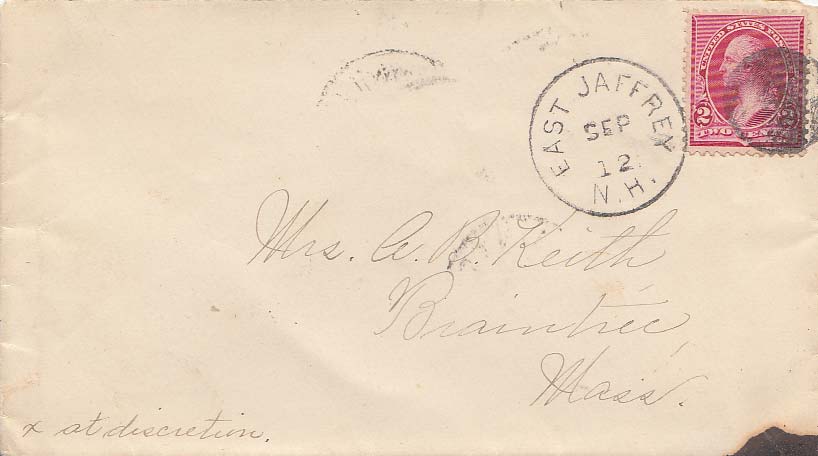 UNITED STATES POSTAGE
2
TWO CENTS
EAST JAFFREY
SEP
12
N.H.
Mrs. A. B. Keith
Braintree
Mass.
x at discretion.